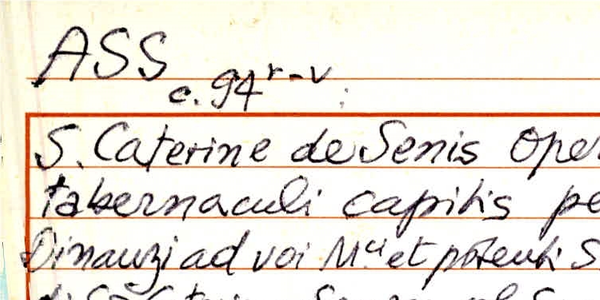 ASS
c. 94r-v:
S. Caterine de Senis ope
tabernaculi capitis pe
Dinanzi ad voi Mci et potenti S
di S.ta Caterin